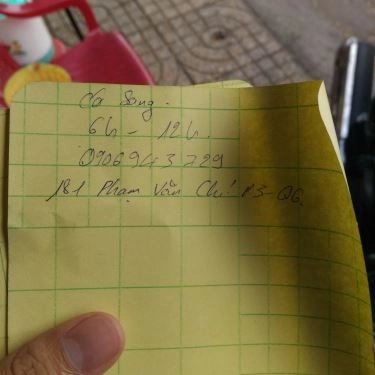 Ca Sáng.
6h - 12h.
0906943729
181 Phạm Văn Chí P3-Q6.